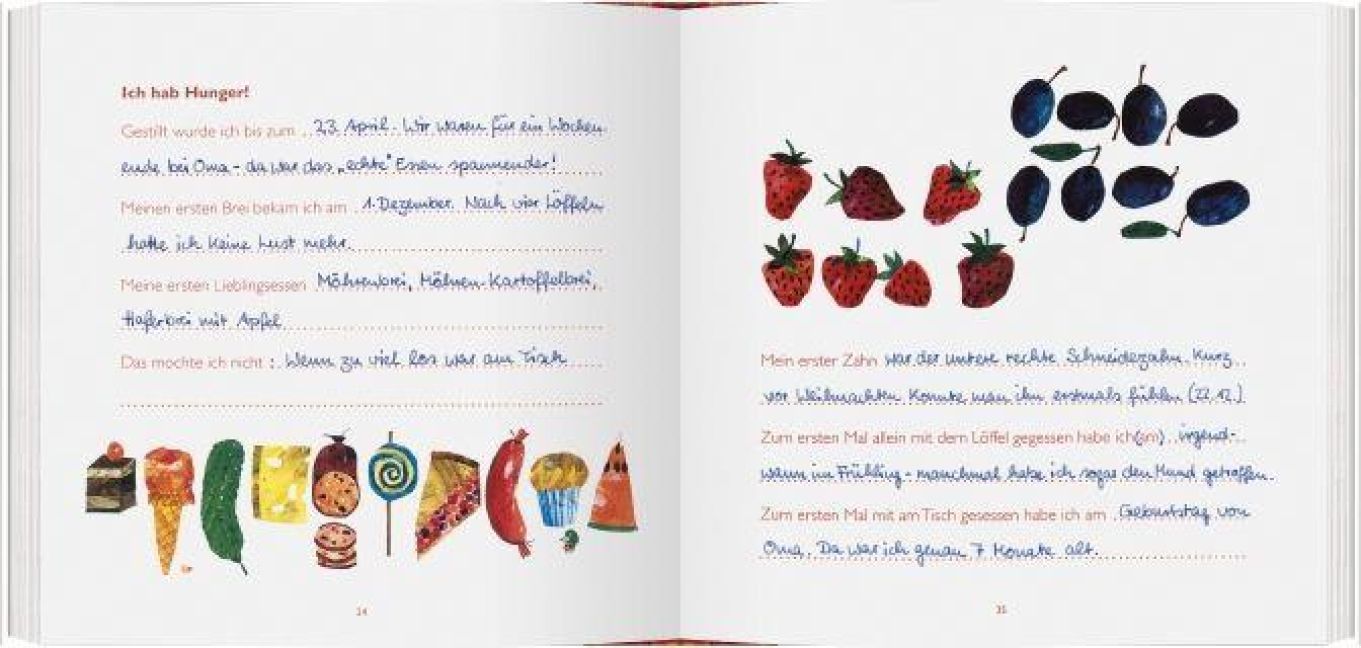 Ich hab Hunger!
Gestillt wurde ich bis zum 23. April. Wir waren für ein Wochen-
ende bei Oma - da war das „echte" Essen spannender!
Meinen ersten Brei bekam ich am 1. Dezember. Nach vier Löffeln
hatte ich keine Lust mehr.
Meine ersten Lieblingsessen Möhrenbrei, Möhren-Kartoffelbrei,
Haferbrei mit Apfel
Das mochte ich nicht: Wenn zu viel los war am Tisch
34
Mein erster Zahn war der untere rechte Schneidezahn. Kurz
vor Weihnachten konnte man ihn erstmals fühlen (22.12.)
Zum ersten Mal allein mit dem Löffel gegessen habe ich (am) irgend-
wann im Frühling - manchmal habe ich sogar den Mund getroffen.
Zum ersten Mal mit am Tisch gesessen habe ich am Geburtstag von
Oma. Da war ich genau 7 Monate alt.
35